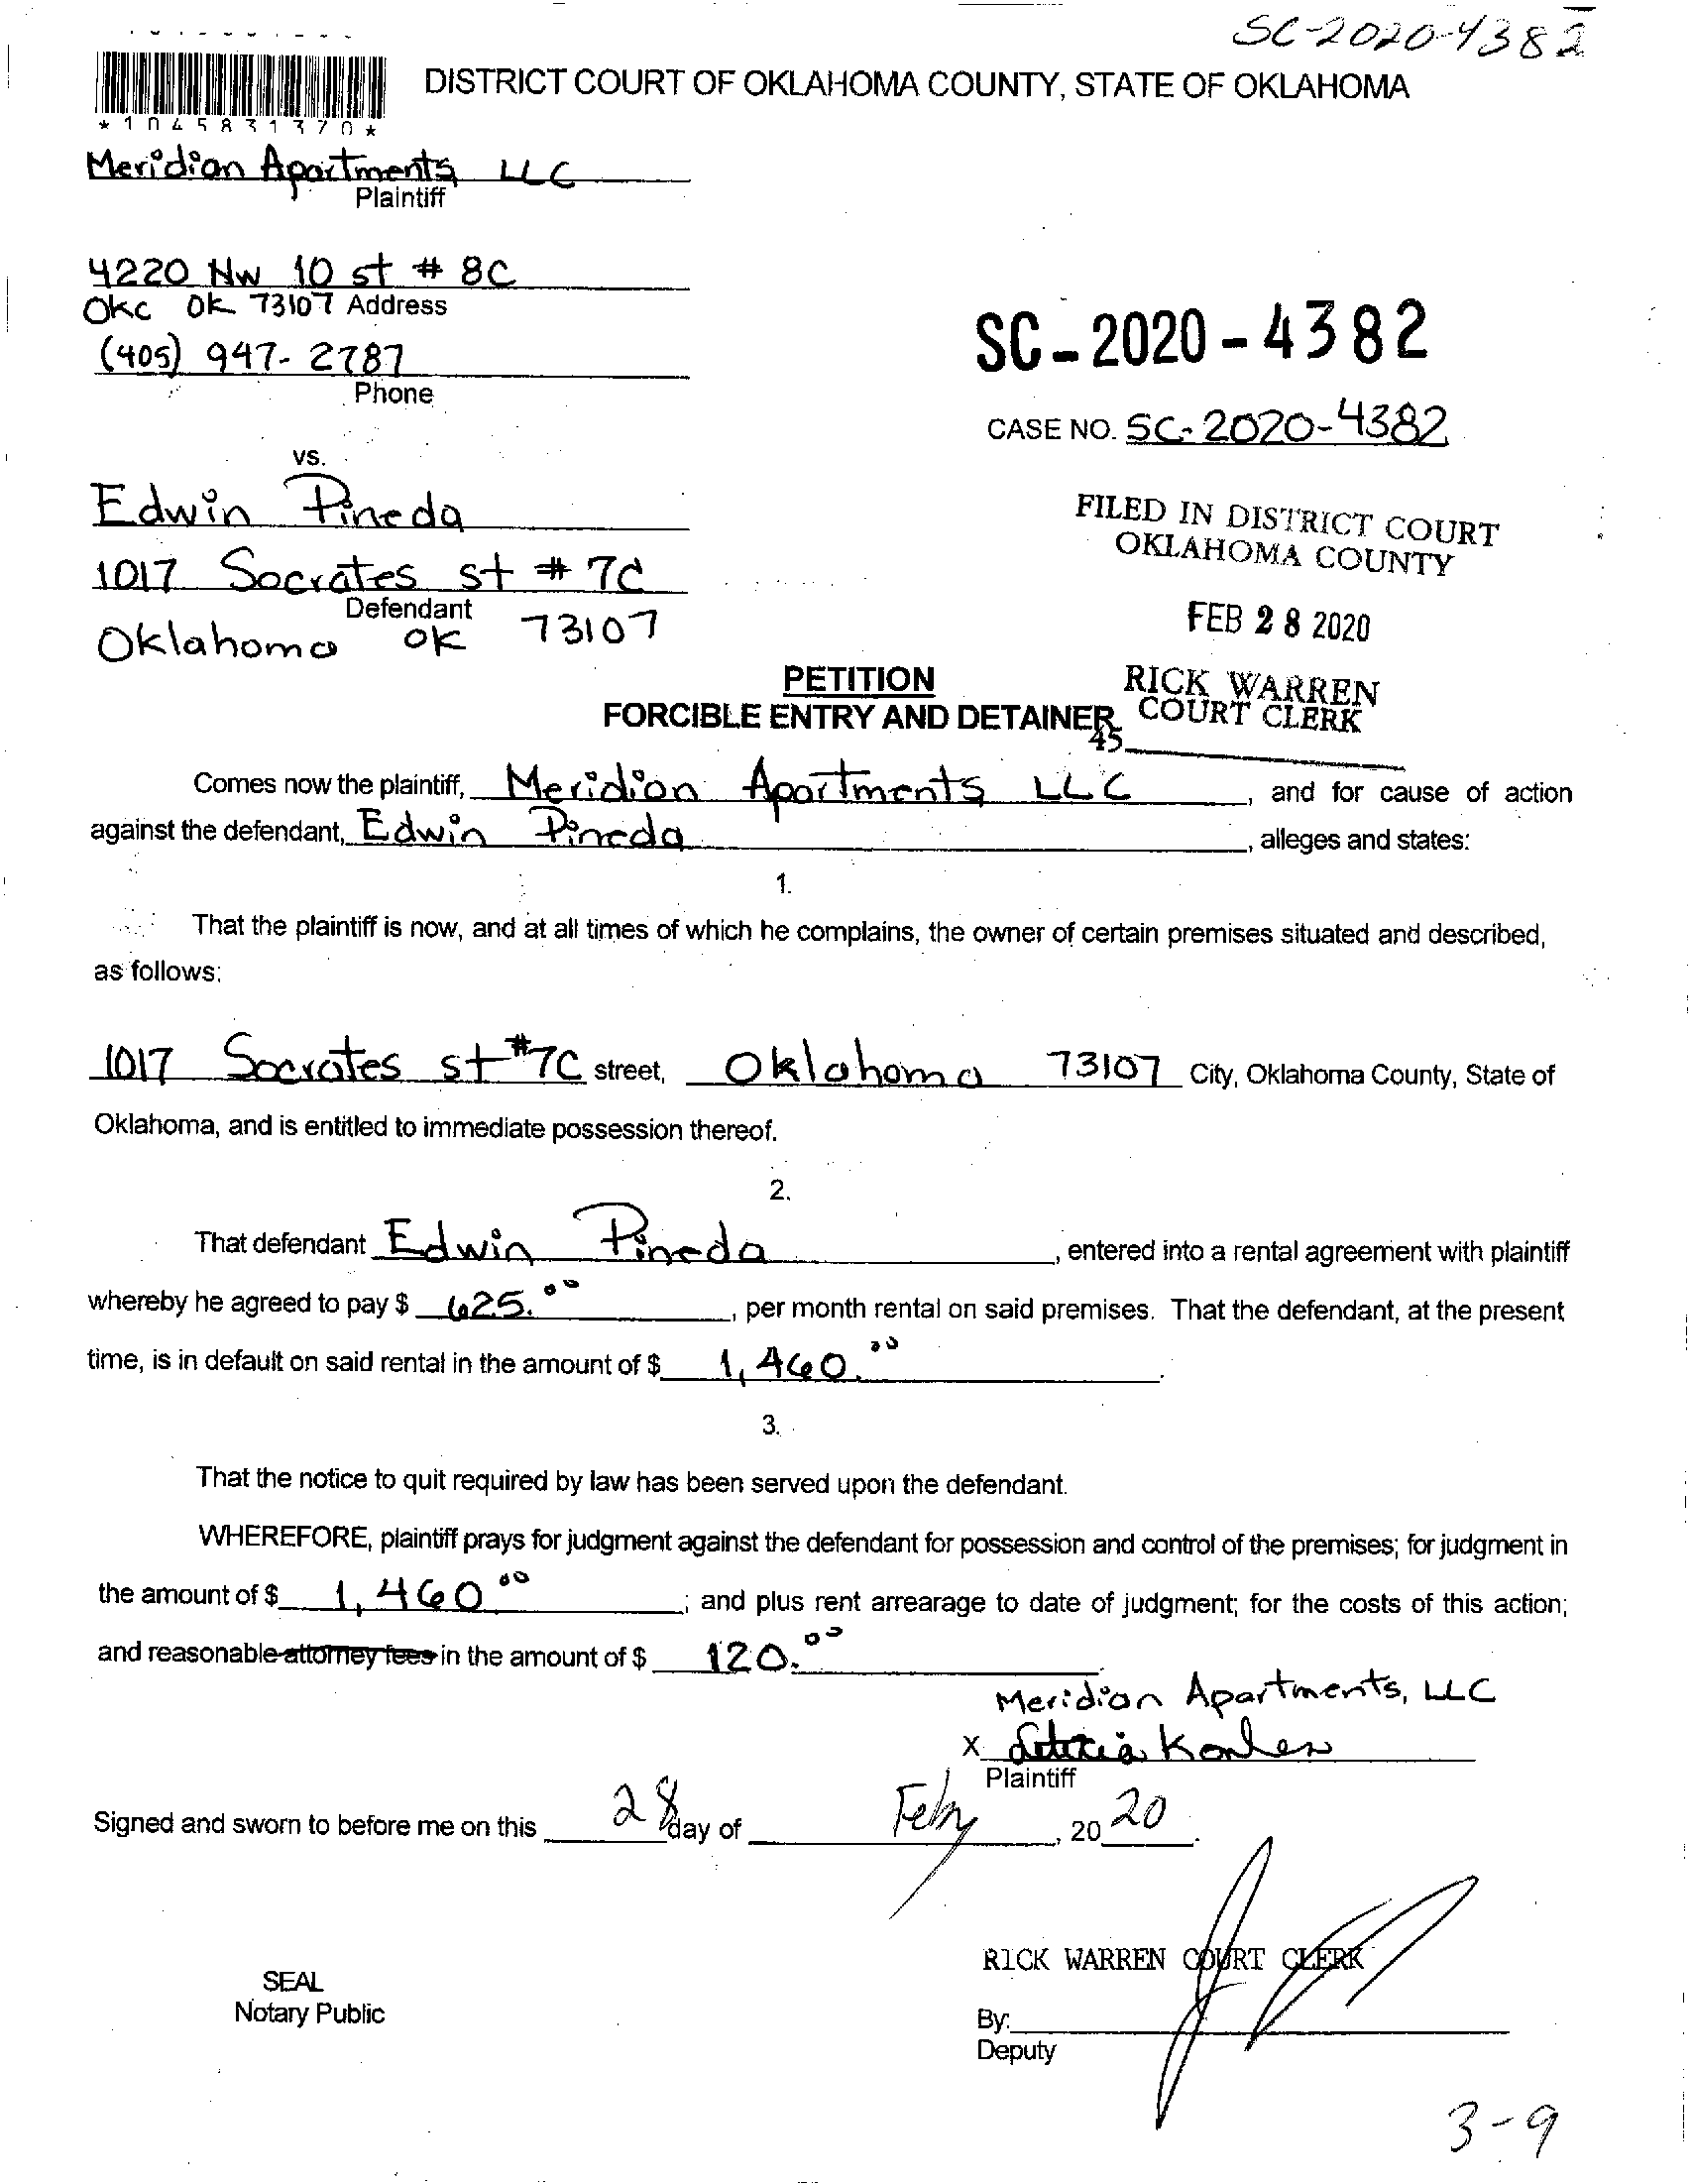 SC-2020-4382
DISTRICT COURT OF OKLAHOMA COUNTY, STATE OF OKLAHOMA
*1045831370*
Meridian Apartments LLC
Plaintiff
4220 NW 10 st # 8C
OKC OK 73107 Address
(405) 947-2787
Phone
SC-2020-4382
CASE NO. SC-2020-4382
vs.
Edwin Pineda
1017 Socrates st # 7C
Defendant
Oklahoma OK 73107
FILED IN DISTRICT COURT
OKLAHOMA COUNTY
FEB 28 2020
RICK WARREN
COURT CLERK
45
PETITION
FORCIBLE ENTRY AND DETAINER
Comes now the plaintiff, Meridian Apartments LLC, and for cause of action
against the defendant, Edwin Pineda, alleges and states:
1.
That the plaintiff is now, and at all times of which he complains, the owner of certain premises situated and described,
as follows:
1017 Socrates st #7C street, Oklahoma 73107 City, Oklahoma County, State of
Oklahoma, and is entitled to immediate possession thereof.
2.
That defendant Edwin Pineda, entered into a rental agreement with plaintiff
whereby he agreed to pay $ 625.00, per month rental on said premises. That the defendant, at the present
time, is in default on said rental in the amount of $ 1,460.00.
3.
That the notice to quit required by law has been served upon the defendant.
WHEREFORE, plaintiff prays for judgment against the defendant for possession and control of the premises; for judgment in
the amount of $ 1,460 00; and plus rent arrearage to date of judgment; for the costs of this action;
and reasonable attorney fees in the amount of $ 120.00
Meridian Apartments, LLC
X
Plaintiff
Signed and sworn to before me on this 28 day of Feby, 20 20.
RICK WARREN COURT CLERK
SEAL
Notary Public
By:
Deputy
3-9